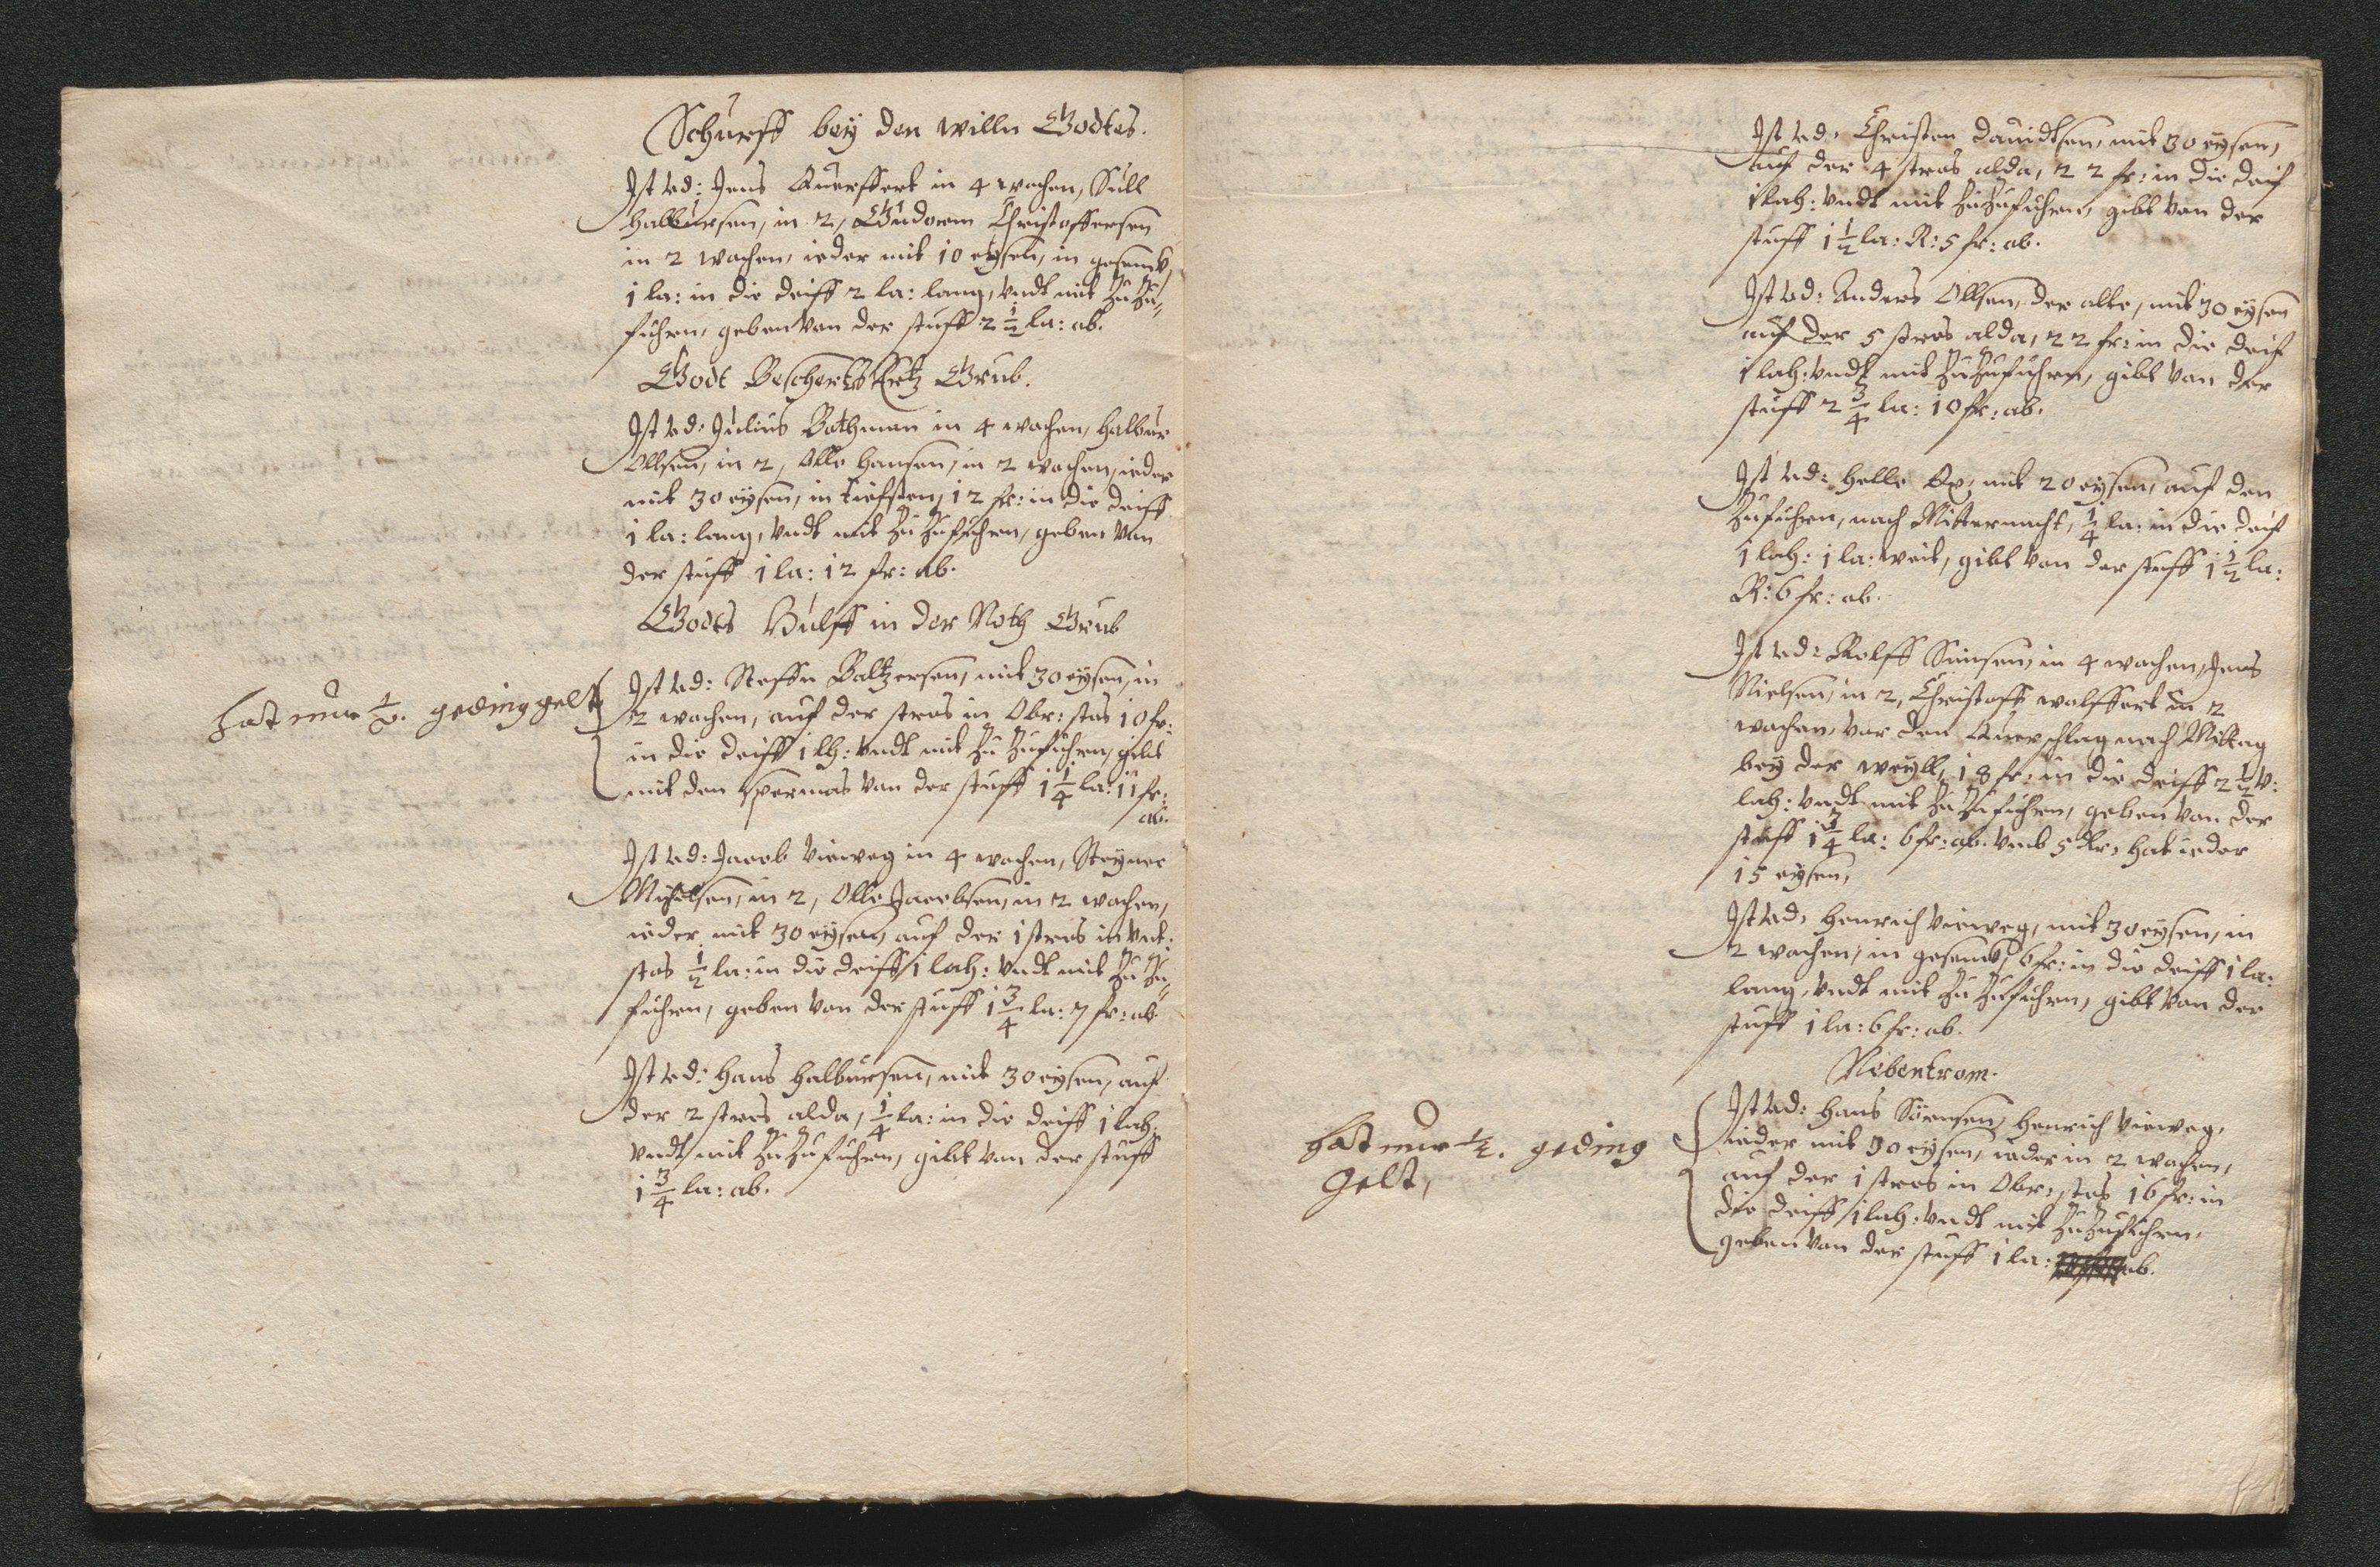 Schurff bey den willn Godtes.
Ist vd: Jens Querffert in 4 wochen, Süll
Halbursen, in 2, Gudorm Christoffersen
in 2 wochen, ieder mit 10 eysen, in gesenck,
1 la: in die deiff 2 la: lang, vndt mit Zu Zu„
fuhren, geben von der stuff 2 1/2 la: ab.
Godt Beschertes Ertz Grub.
Ist vd: Julius Bothman in 4 wochen, Halbur
Ollsen, in 2, Olle Hansen, in 2 wochen, ieder
mit 30 eysen, in tiefsten, 12 fr: in die deiff
1 la: lang, vndt mit Zu Zufuhren, geben von
der stuff 1 la: 12 fr: ab.
Godts Hulff in der Noth Grub
hat nur 1/2. geding gelt
Ist vd: Steffn Baltzersen, mit 30 eysen, in
2 wochen, auf der stros in Obr: stos 10 fr:
in die deiff 1 lh: vndt mit Zu Zufuhren, gibt
mit den spermas von der stuff 1 1/4 la: 11 fr:
ab.
Ist vd: Jacob Vieweg in 4 wochen, Steyner
Michelsen, in 2, Olle Jacobsen, in 2 wochen,
ieder mit 30 eysen, auf der 1 stros in vnt:
stos 1/2 la: in die deiff 1 lah: vndt mit Zu Zu„
fuhren, geben von der stuff 1 3/4 la: 7 fr: ab
Ist vd: Hans Halbursen, mit 30 eysen, auf
der 2 stros alda, 1/4 la: in die deiff 1 lah:
vndt mit Zu Zufuhren, gibt von der stuff
1 3/4 la: ab.
Ist vd: Christen Dauidtsen, mit 30 eysen,
auf der 4 stros alda, 22 fr: in die deif
1 lah: vndt mit Zu Zufuhren, gibt von der
stuff 1 1/2 la: R: 5 fr: ab.
Ist vd: Anders Ollsen, der alte, mit 30 eysen
auf der 5 stros alda, 22 fr: in die deif
1 lah: vndt mit Zu Zufuhren, gibt von der
stuff 2 3/4 la: 10 fr: ab.
Ist vd: Helle Ox, mit 20 eysen, auf den
Zufuhren, nach Mitternacht, 1/4 la: in die deif
1 lah: 1 la: weit, gibt von der stuff 1 1/2 la:
R: 6 fr: ab.
Ist vd: Rolff Simsen, in 4 wochen, Jens
Nielsen, in 2, Christoff wolffert in 2
wochen, vor den Querschlag nach Mittag
bey der weyll, 18 fr: in die deiff 2 1/2 v:
lah: vndt mit Zu Zufuhren, geben von der
stuff 1 3/4 la: 6 fr: ab. vnd 5 Kr: hat ieder
15 eysen,
Ist vd: Henrich Vieweg, mit 30 eysen, in
2 wochen, in gesenck, 6 fr: in die deiff 1 la:
lang, vndt mit Zu Zufuhren, gibt von der
stuff 1 la: 6 fr: ab.
Nebentrom.
hat nur 1/2. geding
gelt,
Ist vd: Hans Sörensen, Henrich Vieweg,
ieder mit 30 eysen, ieder in 2 wochen,
auf der 1 stros in Obr: stos 16 fr: in
die deiff 1 lah: vndt mit Zu Zufuhren,
geben von der stuff 1 la: ab.